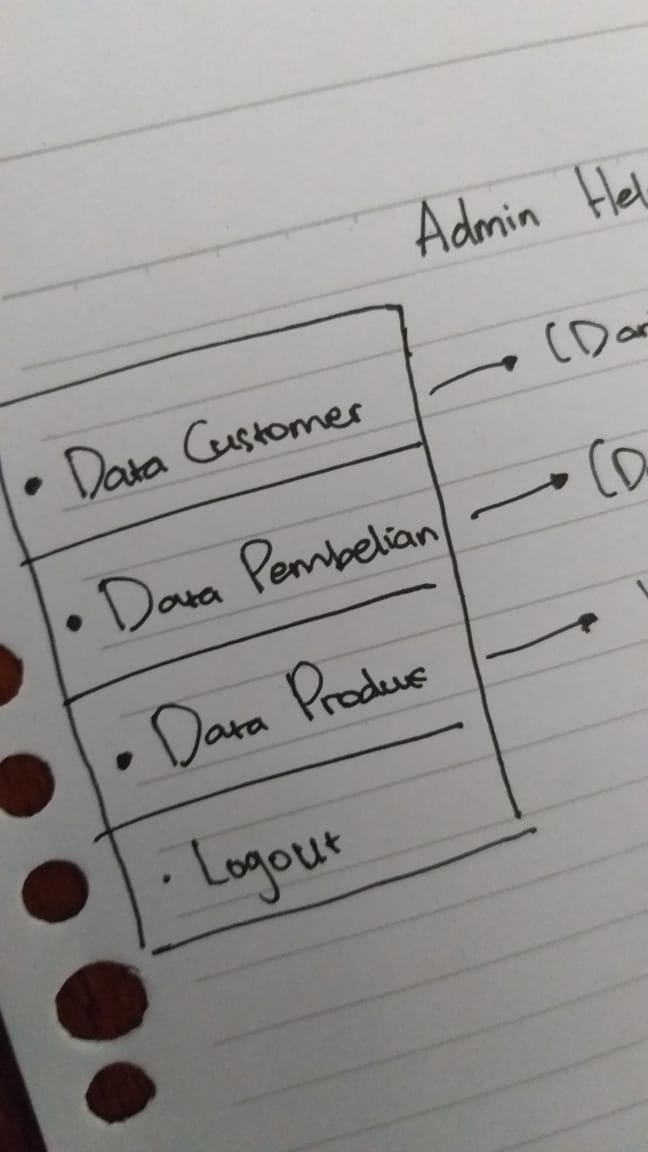 Admin Hel
• Data Customer → (Dar
• Data Pembelian → (D
• Data Produk →
• Logout